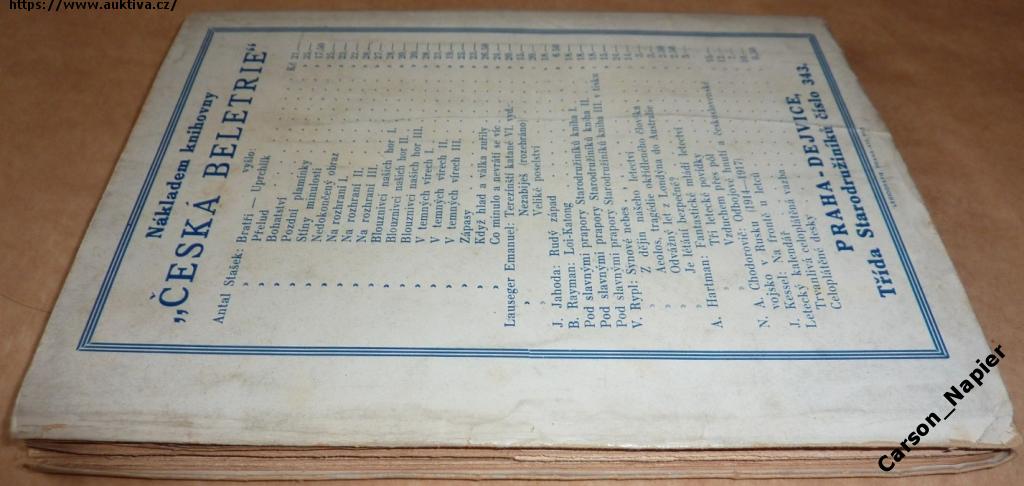 https://www.auktiva.cz/
Nákladem knihovny
„ČESKÁ BELETRIE“
vyšlo:
Antal Stašek: Bratři — Uprchlík
„ Přelud
„ Bohatství
„ Pozdní plamínky
„ Stíny minulosti
„ Nedokončený obraz
„ Na rozhraní I.
„ Na rozhraní II.
„ Na rozhraní III.
„ Blouznivci našich hor I.
„ Blouznivci našich hor II.
„ Blouznivci našich hor III.
„ V temných vírech I.
„ V temných vírech II.
„ V temných vírech III.
„ Zápasy
„ Když hlad a válka zuřily
„ Co minulo a nevrátí se víc
Lauseger Emanuel: Terezínští katané VI. vyd.
„ Nezabiješ (rozebráno)
„ Veliké poselství
J. Jahoda: Rudý západ
B. Rayman: Loi-Kalong
Pod slavnými prapory Starodružiníků kniha I.
Pod slavnými prapory Starodružiníků kniha II.
Pod slavnými prapory Starodružiníků kniha III. v tisku
V. Rypl: Synové nebes
„ Z dějin našeho letectví
„ Aeolos, tragedie okřídleného člověka
„ Odvážný let z Londýna do Australie
„ Je létání bezpečné?
„ Fantastické mládí letectví
A. Hartman: Tři letecké povídky
„ Vzduchem přes pól
N. A. Chodorovič: Odbojové hnutí a československé
vojsko v Rusku (1914—1917)
J. Kessel: Na frontě u letců
Letecký kalendář, celoplátěná vazba
Trvanlivé celoplátěné desky
PRAHA-DEJVICE,
Třída Starodružiníků číslo 343.
Carson_Napier